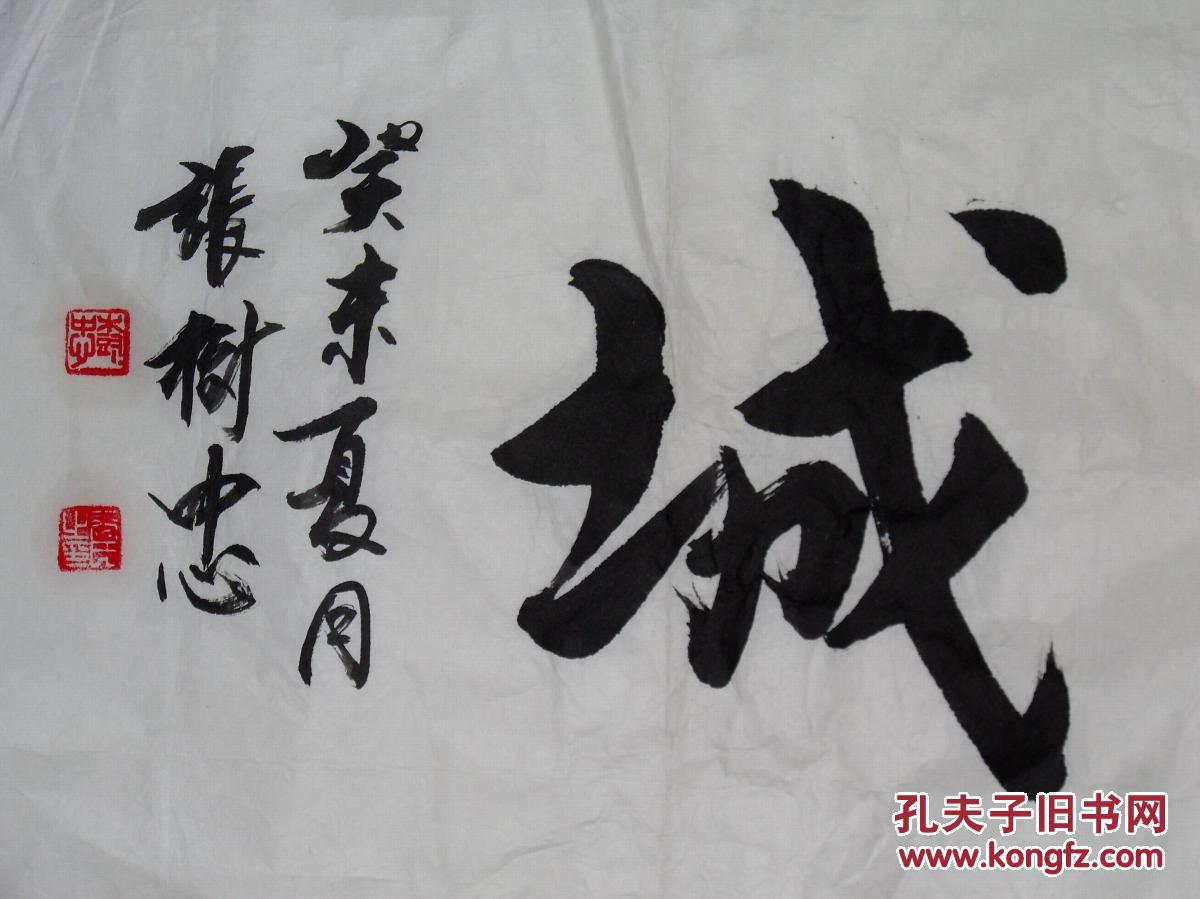 城
癸未夏月
張樹忠
樹忠
孔夫子旧书网
www.kongfz.com